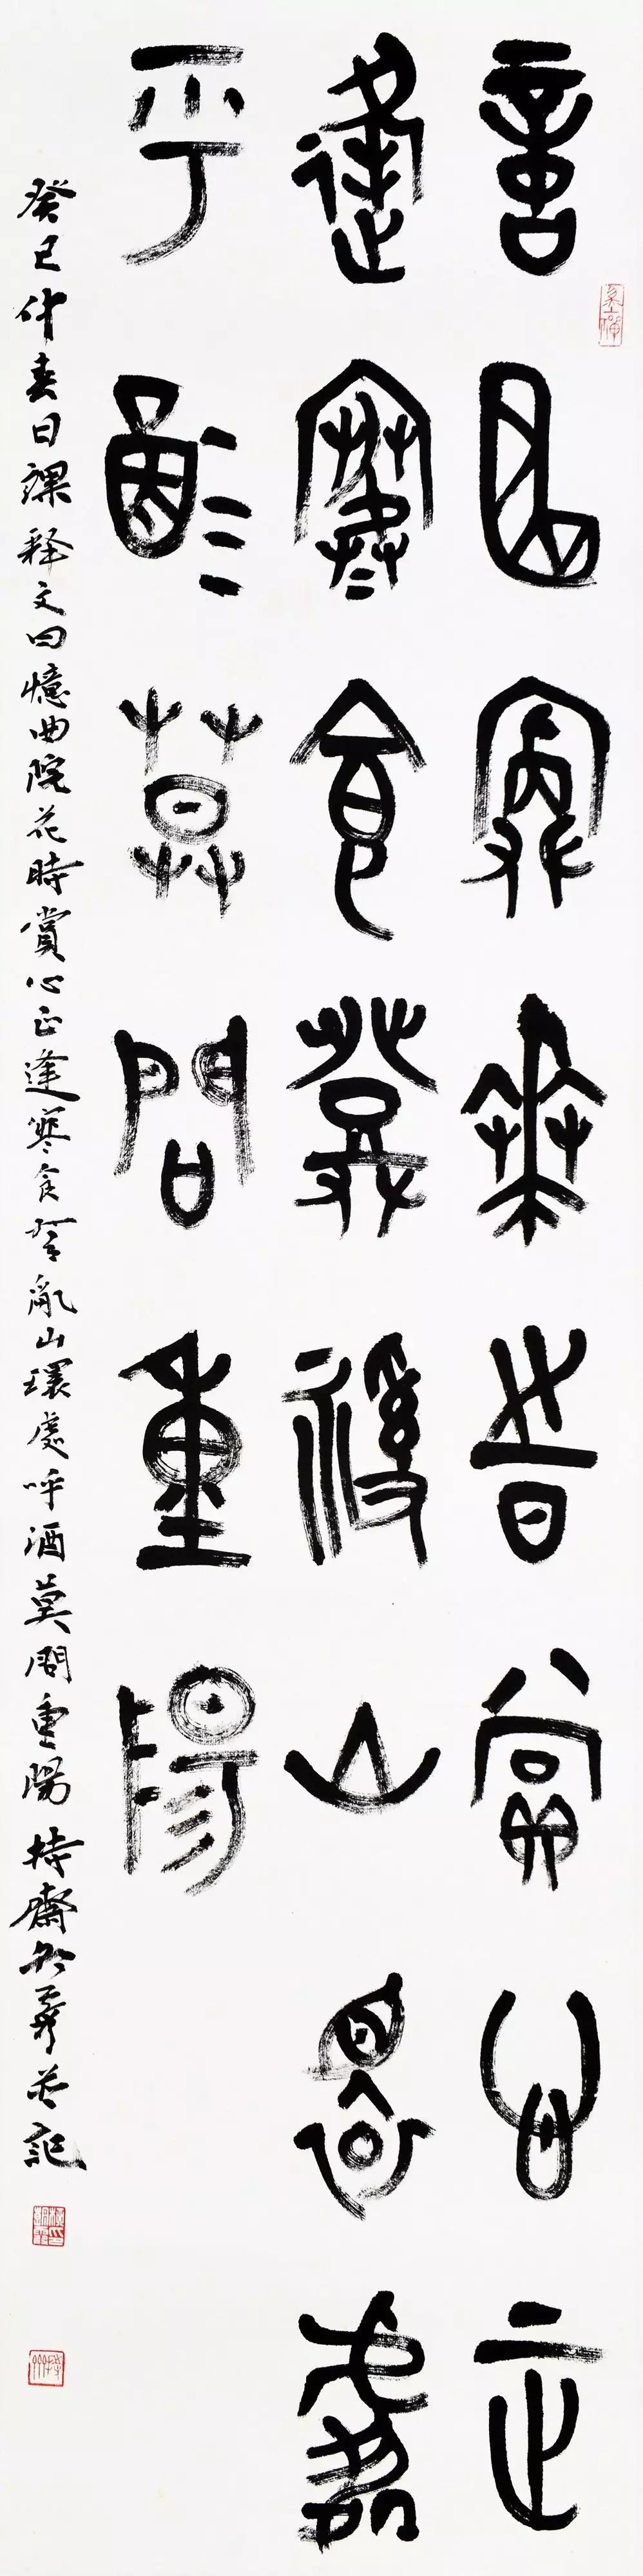 憶曲院花時賞心正
逢寒食登亂山環處
呼酒莫問重陽
癸巳仲春日課释文曰憶曲院花時賞心正逢寒食登亂山環處呼酒莫問重陽 持齋 並記